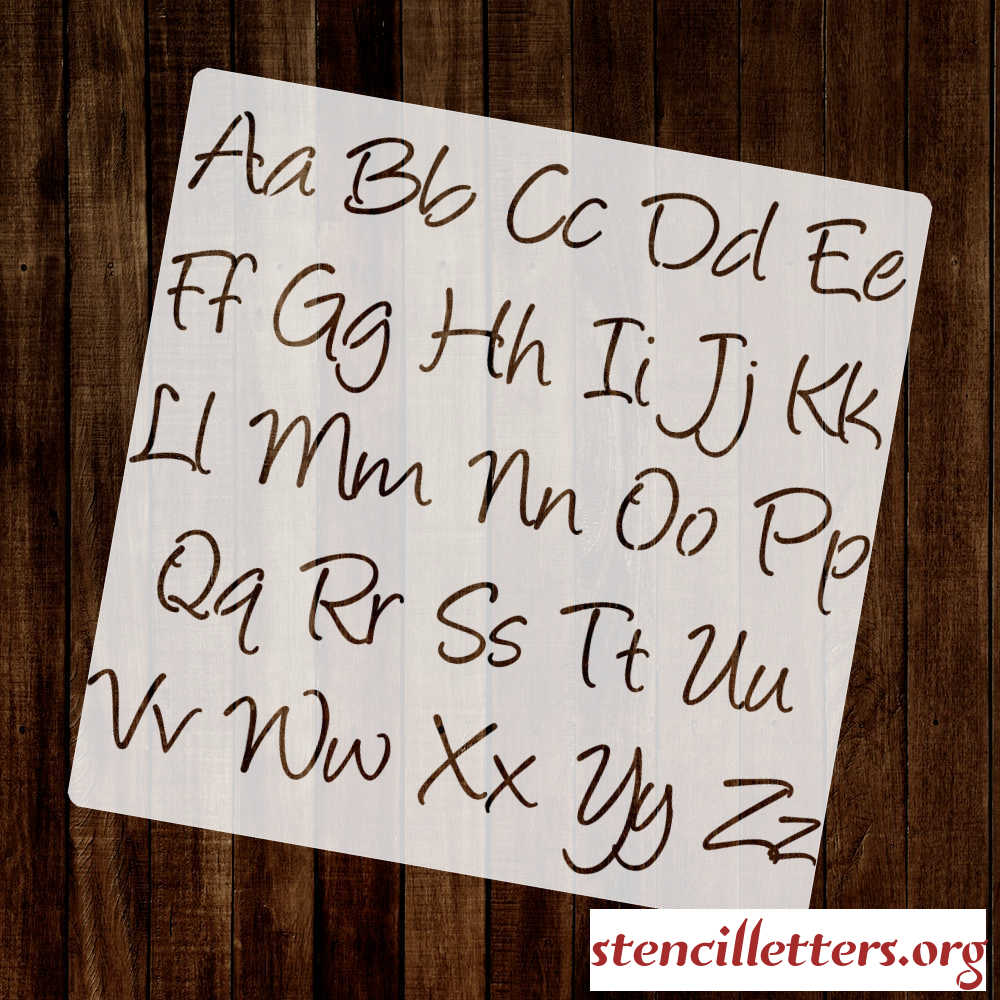 Aa Bb Cc Dd Ee
Ff Gg Hh Ii Jj Kk
Ll Mm Nn Oo Pp
Qq Rr Ss Tt Uu
Vv Ww Xx Yy Zz
stencilletters.org